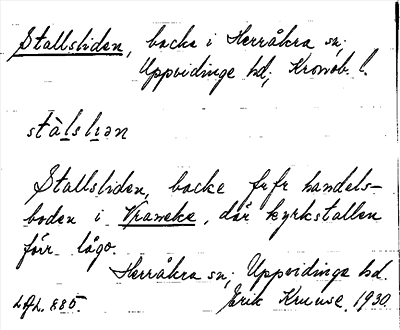 Stallsliden, backe i Herråkra sn;
Uppvidinge hd; Kronob. l.
stàlslıən
Stallsliden, backe fr fr handels-
boden i Vraneke, där kyrkstallen
förr lågo.
Herråkra sn; Uppvidinge hd.
LAL. 885. Erik Kruuse, 1930